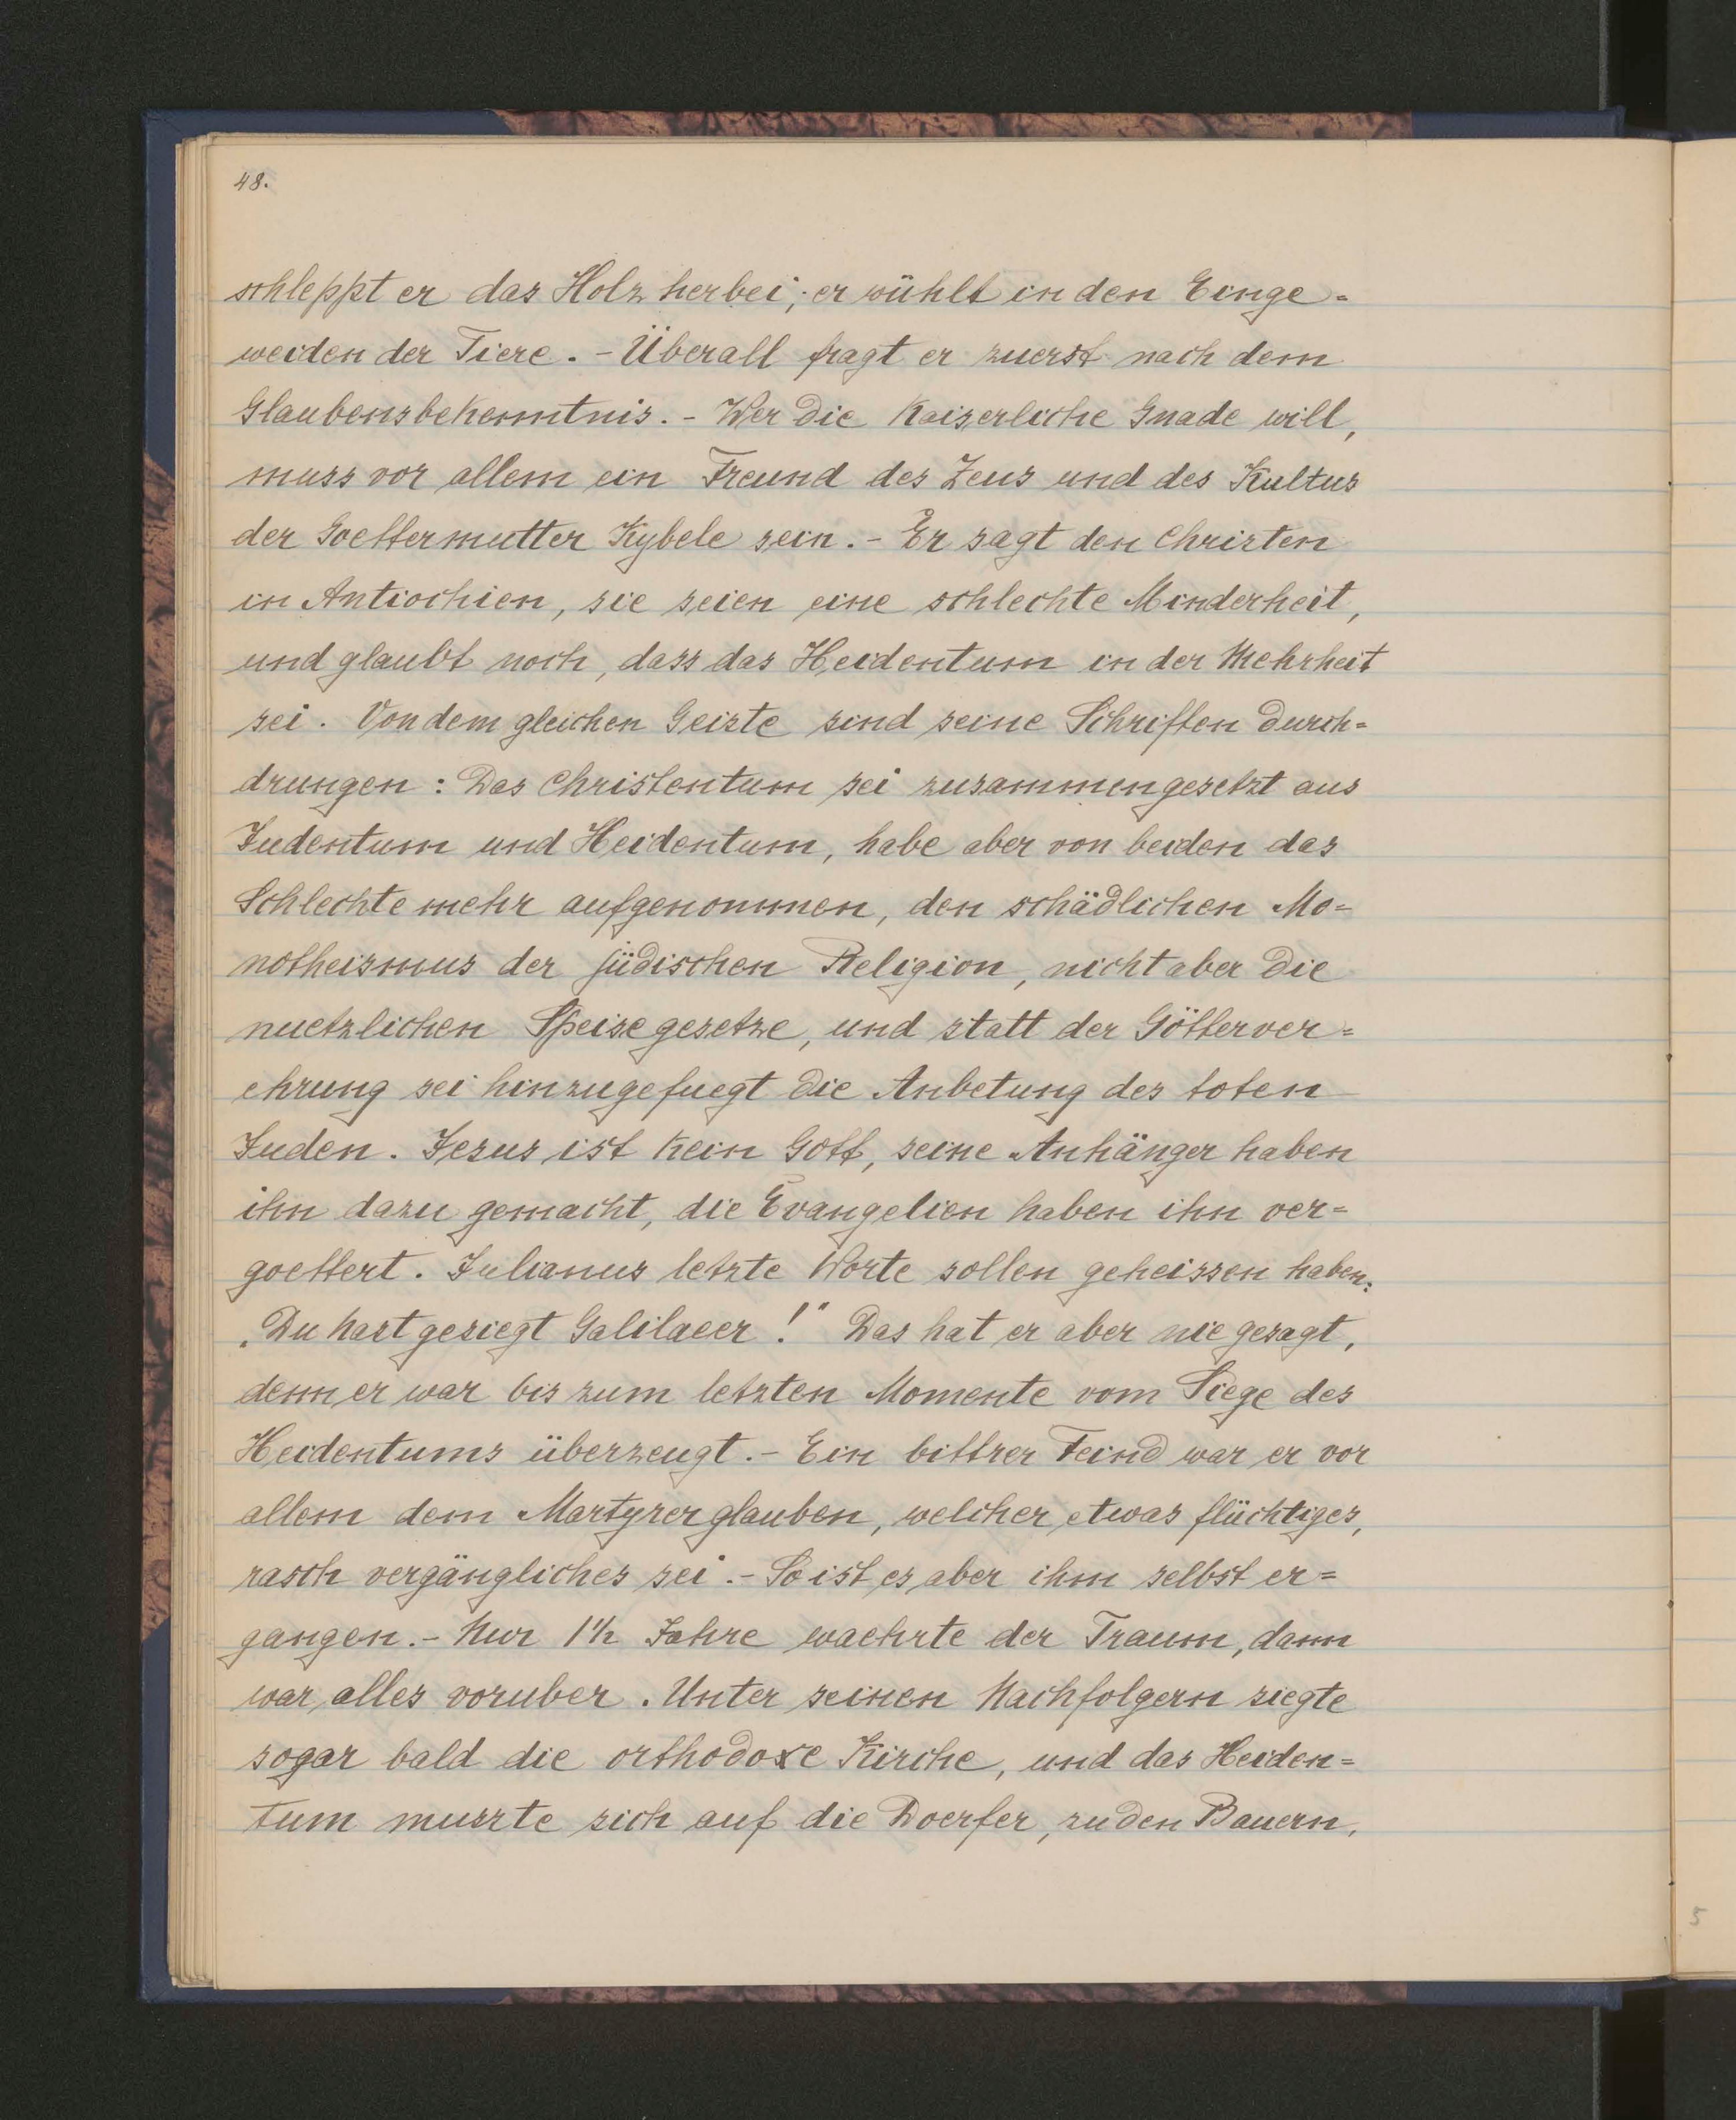 48.
schleppt er das Holz herbei; er wühlt in den Einge=
weiden der Tiere. - Überall fragt er zuerst nach dem
Glaubensbekenntnis. - Wer die Kaiserliche Gnade will,
muss vor allem ein Freund des Zeus und des Kultus
der Goettermutter Kybele sein. - Er sagt den Christen
in Antiochien, sie seien eine schlechte Minderheit,
und glaubt noch, dass das Heidentum in der Mehrheit
sei. Von dem gleichen Geiste sind seine Schriften durch=
drungen: Das Christentum sei zusammengesetzt aus
Judentum und Heidentum, habe aber von beiden das
Schlechte mehr aufgenommen, den schädlichen Mo=
notheismus der jüdischen Religion, nicht aber die
nuetzlichen Speisegesetze, und statt der Götterver=
ehrung sei hinzugefuegt die Anbetung des toten
Juden. Jesus ist kein Gott, seine Anhänger haben
ihn dazu gemacht, die Evangelien haben ihn ver=
goettert. Julianus letzte Worte sollen geheissen haben:
„Du hast gesiegt Galilaeer!" Das hat er aber nie gesagt,
denn er war bis zum letzten Momente vom Siege des
Heidentums überzeugt. - Ein bittrer Feind war er vor
allem dem Martyrerglauben, welcher etwas flüchtiges,
rasch vergängliches sei. - So ist es aber ihm selbst er=
gangen. - Nur 1½ Jahre waehrte der Traum, dann
war alles voruber. Unter seinen Nachfolgern siegte
sogar bald die orthodoxe Kirche, und das Heiden=
tum musste sich auf die Doerfer, zu den Bauern,
5